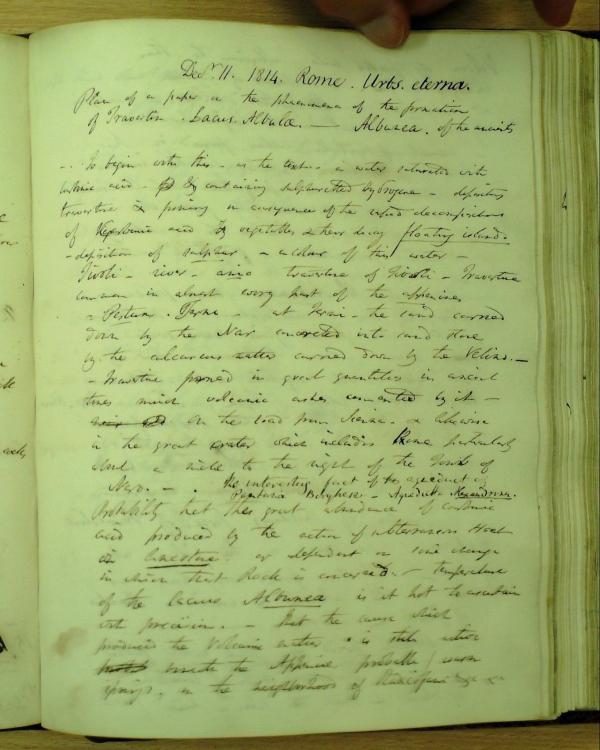 Decr. 11. 1814. Rome. Urbs. eterna.
Plan of a paper on the phenomena of the formation
of Travertine. Lacus Albula. — Albunea. of the ancients
To begin with this - as the
carbonic acid - containing sulphuretted hydrogene - deposites
travertine in consequence of the decomposition
of acid by vegetables & their decay floating islands
- deposition of sulphur - colour of this water -
Tivoli - river - anio travertine of Tivoli - Travertine
common in almost every part of the Appenines
- Pestum. Terni - at Terni - the sand carried
down by the Nar concreted into sand stone
by the calcareous water carried down by the Velino. —
- Travertine formed in great quantities in ancient
times volcanic ashes cemented by it -
On the road from Sienna. & likewise
in the great crater which includes Rome particularly
about a mile to the right of the Tomb of
Nero. - the interesting fact of the aqueduct of
Borghese - Aqueduct
Probability that this great abundance of carbonic
acid produced by the action of subterraneous Heat
on limestone or dependent on some change
in which that Rock is concerned. - temperature
of the lacus Albunea is it hot to ascertain
with precision. - that the cause which
produced the Volcanic is still active
beneath the Appenine probable / warm
springs. in the neighborhood of